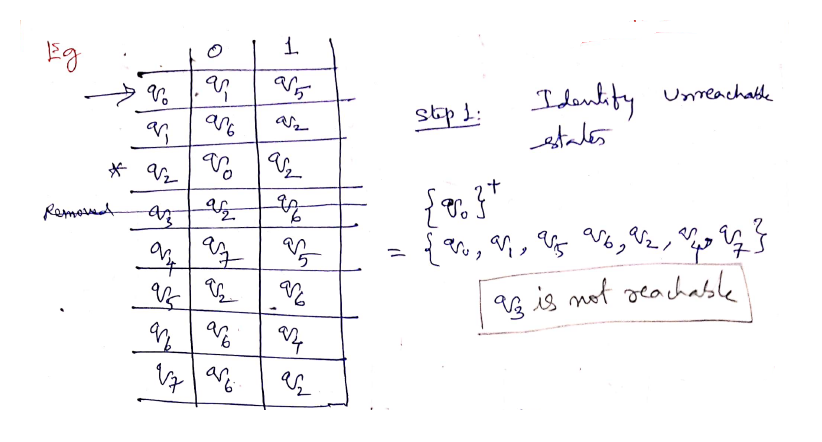 Eg
0 1
→ q0 q1 q5
q1 q6 q2
* q2 q0 q2
Removed q3 q2 q6
q4 q7 q5
q5 q2 q6
q6 q6 q4
q7 q6 q2
Step 1: Identify Unreachable
states
{q0}⁺
= {q0, q1, q5 q6, q2, q4, q7}
q3 is not reachable